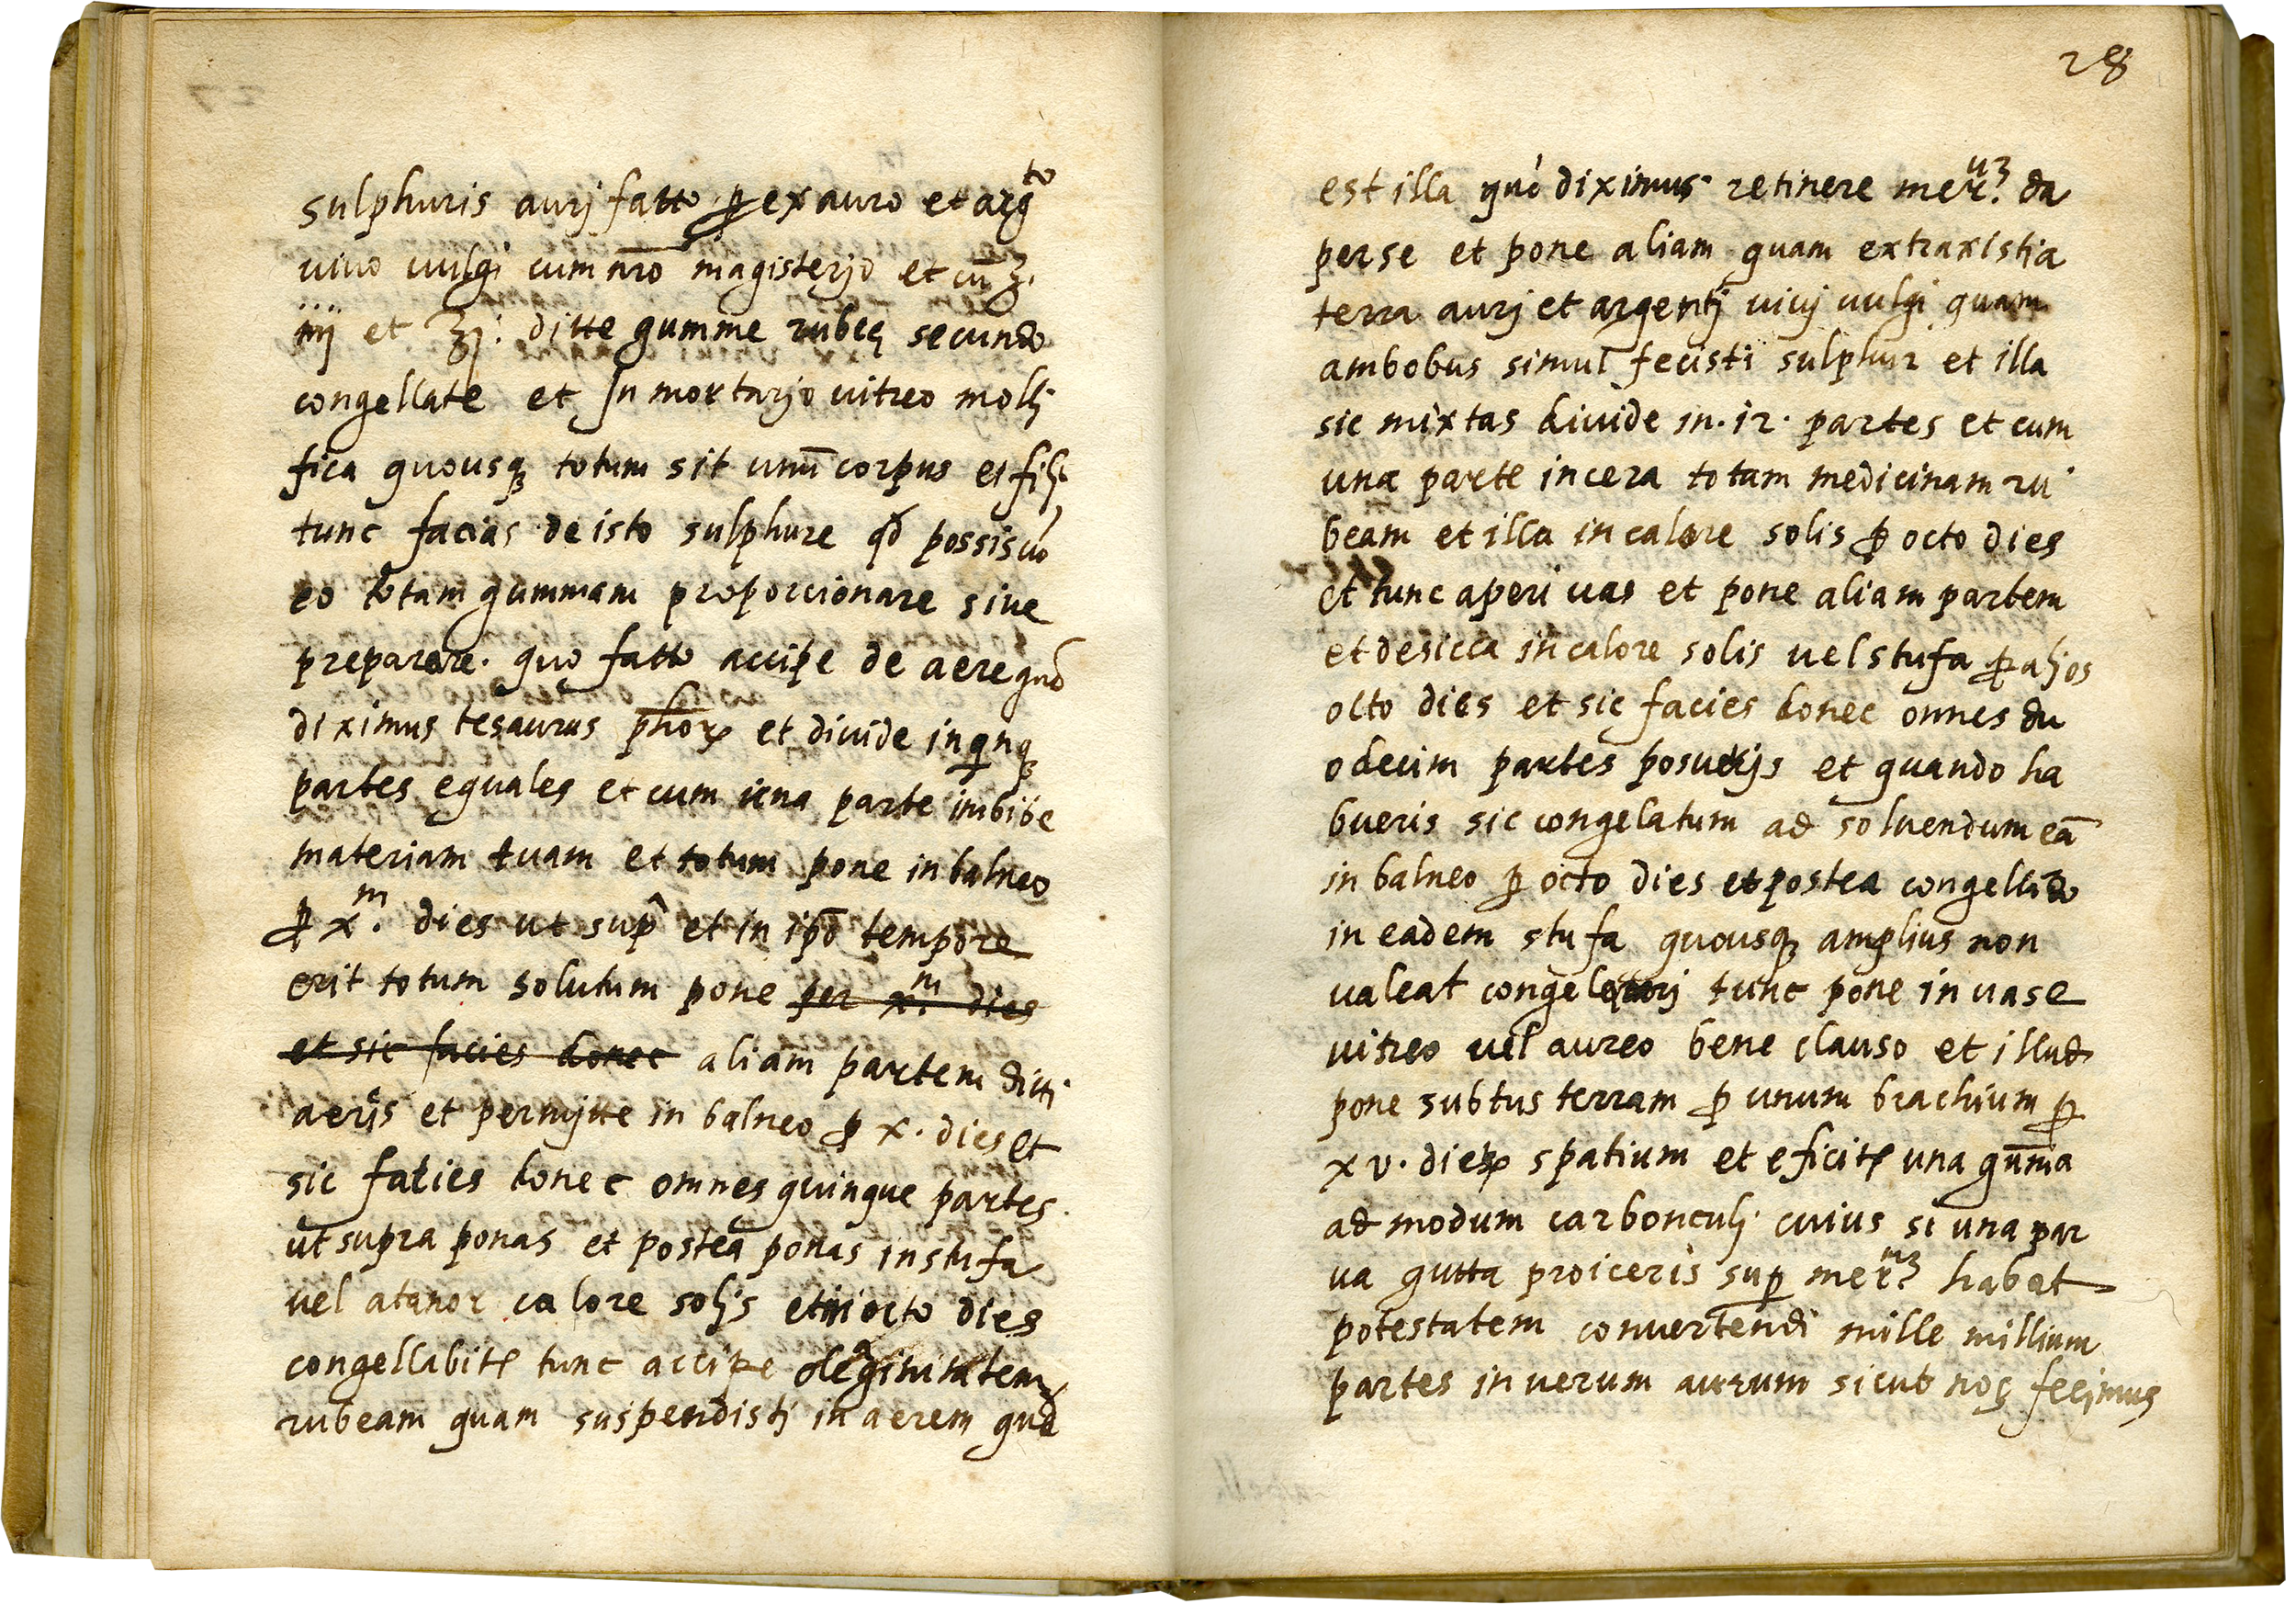 sulphuris aurj fatto ꝑ ex auro et argto
uiuo uulgi cum nr̄o magisterjo et cū ʒ.
iiij et ʒj. ditte gumme rubeę secundo
congellate et In mortarjo uitreo mollj
fica quousqꝫ totum sit unū corpus et
tunc facias de isto sulphure qđ possis
eo totam gummam proporcionare siue
preparare. quo fatto accipe de aere quod
diximus tesaurus phoꝝ et diuide in qnqꝫ
partes equales et cum una parte imbibe
materiam tuam et totum pone in balneo
ꝑ xm. dies ut sup̄ et in ip̄o tempore
erit totum solutum pone per xm. dies
et sic facies donec aliam partem ditti
aeris et permjtte in balneo ꝑ x. dies et
sic faties donec omnes quinque partes.
ut supra ponas et postea ponas in stufa
uel atanor calore soljs et in octo dies
congellabitꝛ tunc accipe oleaginitatem
rubeam quam suspendistj in aerem que
28
est illa que diximus retinere mercuꝫ. da
per se et pone aliam quam extraxisti a
terra aurj et argentj uiuj uulgi quam
ambobus simul fecisti sulphur et illa
sic mixtas diuide in. 12. partes et cum
una parte incera totam medicinam ru
beam et illa in calore solis ꝑ octo dies
et tunc aperi uas et pone aliam partem
et desicca in calore solis uel stufa ꝑ aljos
octo dies et sic facies donec omnes du
odecim partes posuerjs et quando ha
bueris sic congelatum ad soluendum eā
in balneo ꝑ octo dies et postea congellādo
in eadem stufa quousqꝫ amplius non
ualeat tunc pone in uase
uitreo uel aureo bene clauso et illud
pone subtus terram ꝑ unum brachium ꝑ
xv. dieꝝ spatium et eficitꝛ una gūma
ad modum carbonculj cuius si una par
ua gutta proiceris sup mercmꝫ. habet
potestatem conuertendi mille millium
partes in uerum aurum sicut nos fecjmus